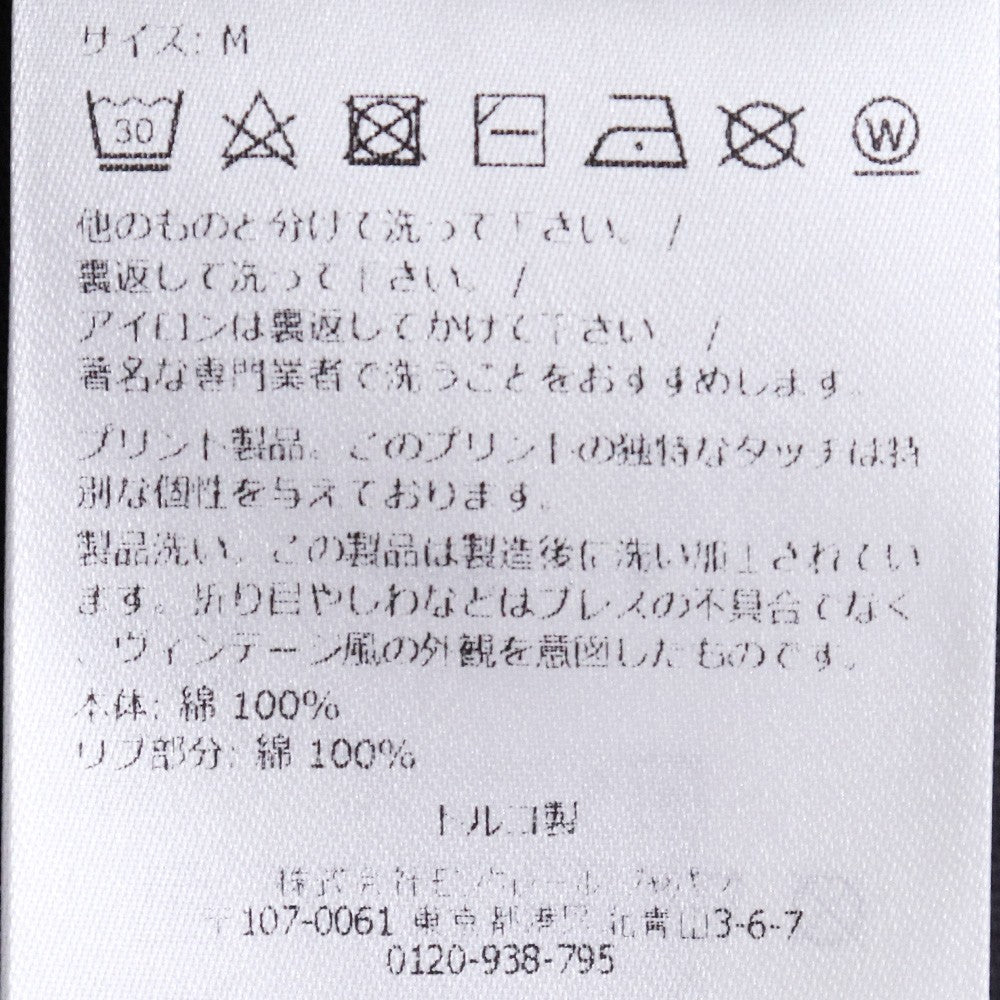 サイズ: M
30
W
他のものと分けて洗って下さい。/
裏返して洗って下さい。/
アイロンは裏返してかけて下さい。/
著名な専門業者で洗うことをおすすめします。
プリント製品。このプリントの独特なタッチは特
別な個性を与えております。
製品洗い。この製品は製造後に洗い加工されてい
ます。折り目やしわなどはプレスの不具合でなく
、ヴィンテージ風の外観を意図したものです。
本体: 綿 100%
リブ部分: 綿 100%
トルコ製
株式会社モンクレール ジャパン
〒107-0061 東京都港区 北青山3-6-7
0120-938-795